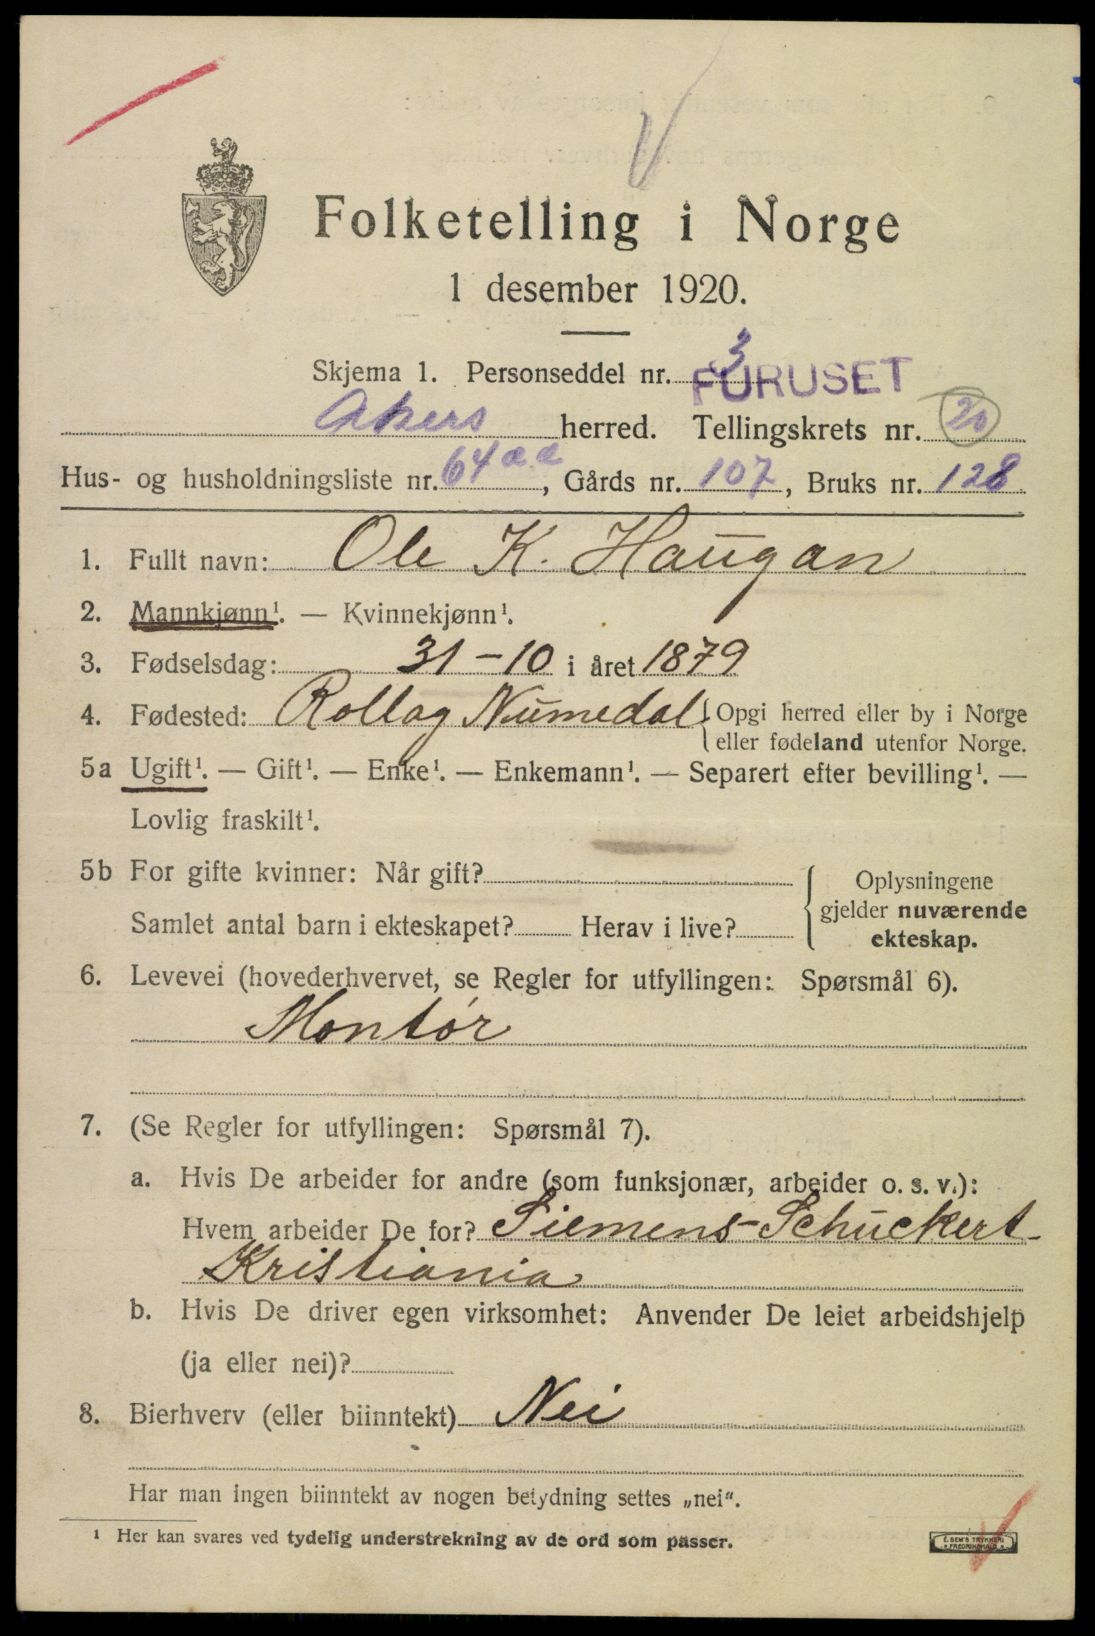 Folketelling i Norge
1 desember 1920.
Skjema 1. Personseddel nr. 3
FURUSET
Akers herred. Tellingskrets nr. 20
Hus- og husholdningsliste nr. 64 aa, Gårds nr. 107, Bruks nr. 128
1. Fullt navn: Ole K. Haugan
2. Mannkjønn¹. — Kvinnekjønn¹.
3. Fødselsdag: 31-10 i året 1879
4. Fødested: Rollag Numedal { Opgi herred eller by i Norge
eller fødeland utenfor Norge.
5a Ugift¹. — Gift¹. — Enke¹. — Enkemann¹. — Separert efter bevilling¹. —
Lovlig fraskilt¹.
5b For gifte kvinner: Når gift?
Samlet antal barn i ekteskapet? Herav i live?
Oplysningene
gjelder nuværende
ekteskap.
6. Levevei (hovederhvervet, se Regler for utfyllingen: Spørsmål 6).
Montør
7. (Se Regler for utfyllingen: Spørsmål 7).
a. Hvis De arbeider for andre (som funksjonær, arbeider o. s. v.):
Hvem arbeider De for? Siemens-Schuckert
Kristiania
b. Hvis De driver egen virksomhet: Anvender De leiet arbeidshjelp
(ja eller nei)?
8. Bierhverv (eller biinntekt) Nei
Har man ingen biinntekt av nogen betydning settes „nei".
¹ Her kan svares ved tydelig understrekning av de ord som passer.
E. SEM'S TRYKKERI
FREDRIKSHALD